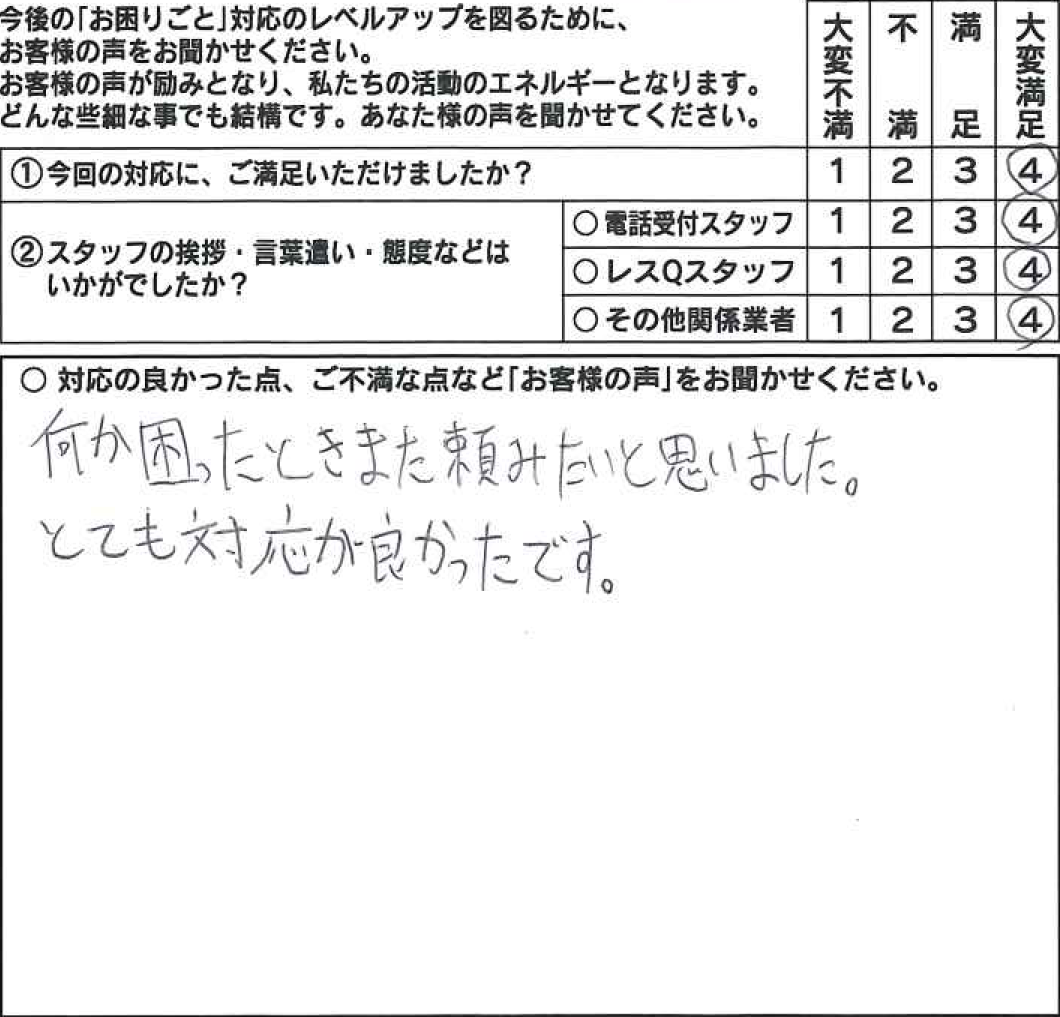 今後の「お困りごと」対応のレベルアップを図るために、
お客様の声をお聞かせください。
お客様の声が励みとなり、私たちの活動のエネルギーとなります。
どんな些細な事でも結構です。あなた様の声を聞かせてください。
大変不満
不満
満足
大変満足
①今回の対応に、ご満足いただけましたか？ 1 2 3 4
②スタッフの挨拶・言葉遣い・態度などは
いかがでしたか？
○ 電話受付スタッフ 1 2 3 4
○ レスQスタッフ 1 2 3 4
○ その他関係業者 1 2 3 4
○ 対応の良かった点、ご不満な点など「お客様の声」をお聞かせください。
何か困ったときまた頼みたいと思いました。
とても対応が良かったです。